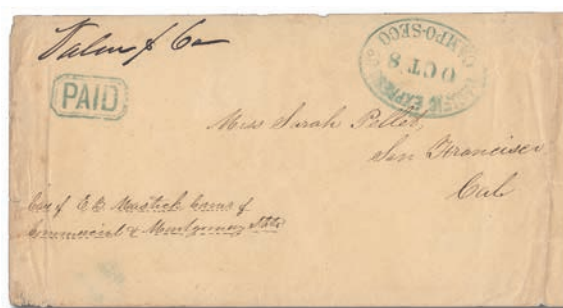 PAID
PACIFIC EXPRESS CO
OCT 8
CAMPO-SECO
Miss Sarah Pellet,
San Francisco
Cal
Care of E B Mastick Corner of
Commercial & Montgomery Sts